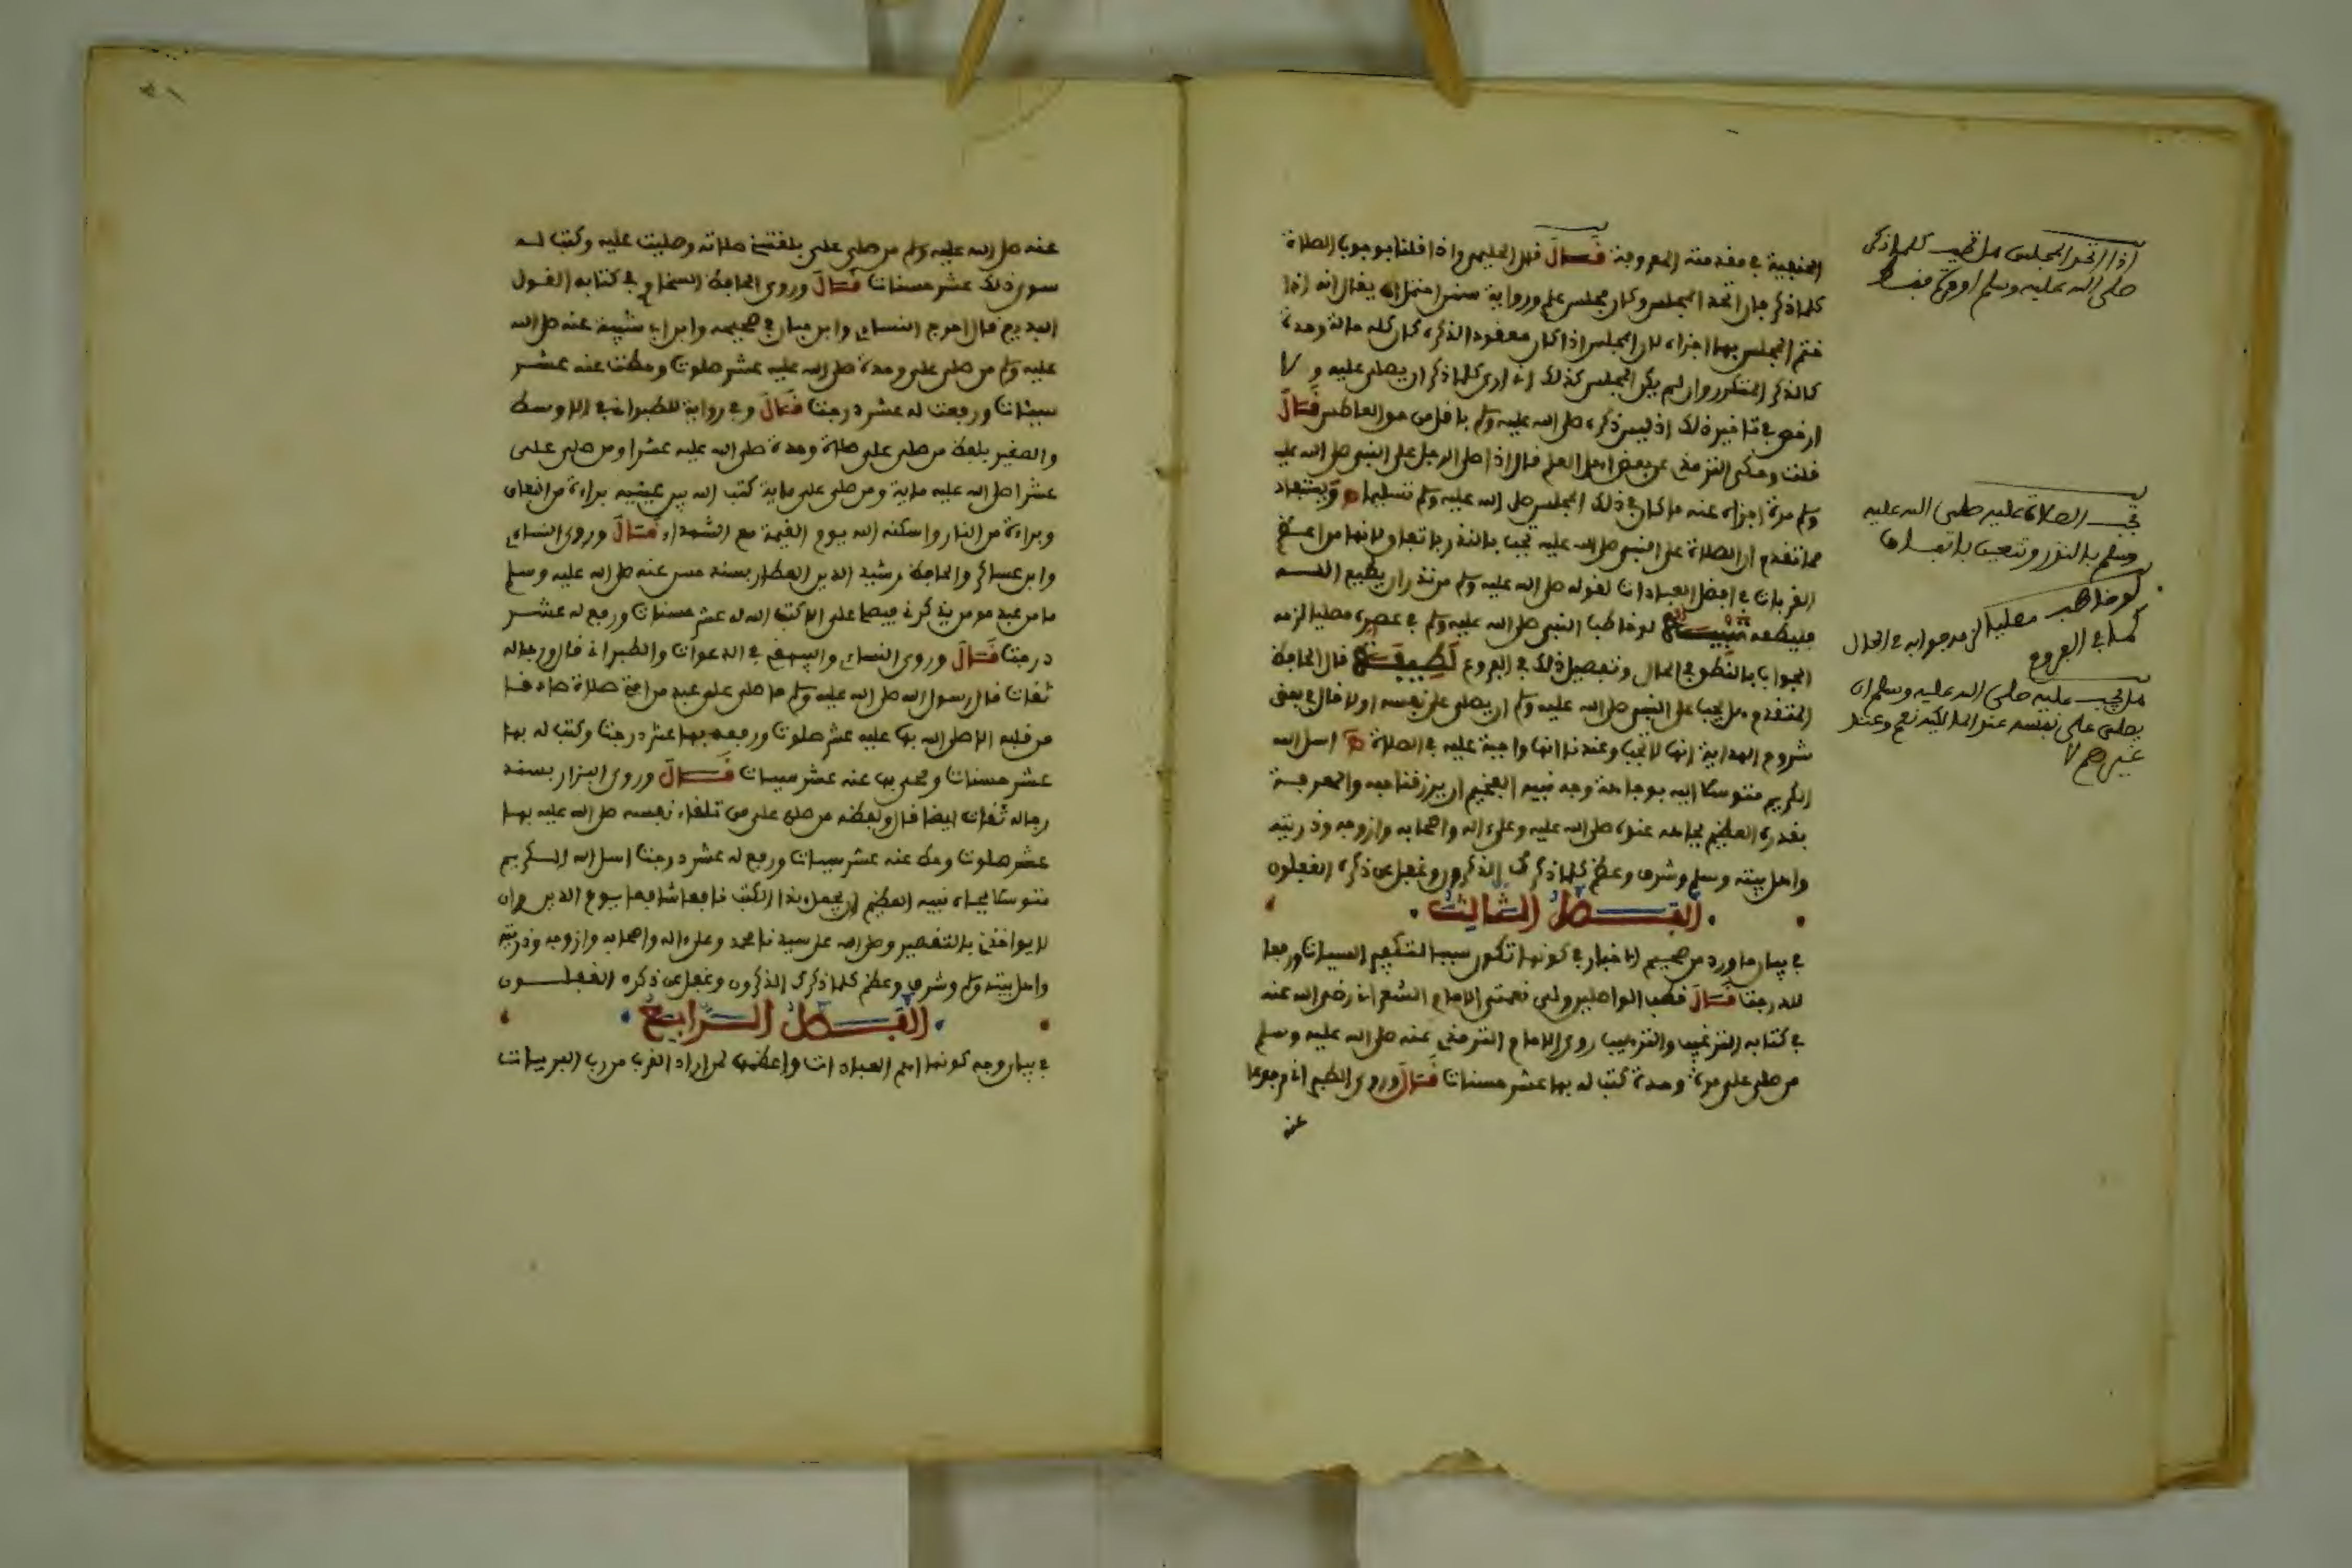 الحنفية في مقدمته المعروفة قال قال الحليمي واذا قلنا بوجوب الصلاة
كلما ذكر فان اتحد المجلس وكان مجلس علم ورواية سنن احتمل ان يقال انه اذا
ختم المجلس بها اجزاه لان المجلس اذا كان معقودا لذكره كان كله حالة وحدة
كالذكر المتكرر وان لم يكن المجلس كذلك اني ارى كلما ذكر ان يصلى عليه ولا
ارخص في تاخير ذلك اذ ليس ذكره صلى الله عليه وسلم باقل من حق العاطس قال
قلت وحكى الترمذي عن بعض اهل العلم قال اذا صلى الرجل على النبي صلى الله عليه
وسلم مرة اجزاه عنه ما كان في ذلك المجلس صلى الله عليه وسلم تسليما ويستفاد
مما تقدم ان الصلاة على النبي صلى الله عليه تجب بالنذر باتفاق لانها من اعظم
القربات وافضل العبادات لقوله صلى الله عليه وسلم من نذر ان يطيع الله
فليطعه تنبيه لو خاطب النبي صلى الله عليه وسلم في عصره مصليا لزمه
الجواب بالنطق في الحال وتفصيل ذلك في الفروع لطيفة قال الحافظ
المتقدم هل يجب على النبي صلى الله عليه وسلم ان يصلي على نفسه او لا قال في بعض
شروح الهداية انها لا تجب وعندنا انها واجبة عليه في الصلاة اسل الله
الكريم متوسلا اليه بوجاهة وجه نبيه الفخيم ان يرزقنا حبه والمعرفة
بقدره العظيم بجاهه عنده صلى الله عليه وعلى اله واصحابه وازوجه وذريته
واهل بيته وسلم وشرف وعظم كلما ذكرك الذكرون وغفل عن ذكره الغفلون
الفصل الثالث
في بيان ما ورد من صحيح الاخبار في كونها تكون سببا لتكفير السيات ورفعا
للدرجت قال قطب الواصلين ولي نعمتي الامام الشعراني رضي الله عنه
في كتابه الترغيب والترهيب روى الامام الترمذي عنه صلى الله عليه وسلم
من صلى علي مرة وحدة كتب له بها عشر حسنات قال وروى الطبراني مرفوعا
عنه
اذا اتحد المجلس هل تجب كلما ذكر
صلى الله عليه وسلم او مرة فقط
تجب الصلاة عليه صلى الله عليه
وسلم بالنذر وتتعين باتفاق
لو خاطب مصليا لزمه جوابه في الحال
كما في الفروع
هل يجب عليه صلى الله عليه وسلم ان
يصلي على نفسه عند المالكية نعم وعند
غيرهم لا
عنه صلى الله عليه وسلم من صلى علي بلغتني صلاته وصليت عليه وكتب له
سوى ذلك عشر حسنات قال وروى الحافظ السخاوي في كتابه القول
البديع قال اخرج النساي وابن حبان في صحيحه وابن ابي شيبة عنه صلى الله
عليه وسلم من صلى علي وحدة صلى الله عليه عشر صلوت وحطت عنه عشر
سيئات ورفعت له عشر درجت قال وفي رواية للطبراني في الاوسط
والصغير بلفظ من صلى علي صلاة وحدة صلى الله عليه عشرا ومن صلى علي
عشرا صلى الله عليه ماية ومن صلى علي ماية كتب الله بين عينيه براءة من النفاق
وبراءة من النار واسكنه الله يوم القيمة مع الشهداء قال وروى النساي
وابن عساكر والحافظ رشيد الدين العطار بسند حسن عنه صلى الله عليه وسلم
ما من عبد مومن يذكرني فيصلي علي الا كتب الله له عشر حسنات ورفع له عشر
درجت قال وروى النساي والبيهقي في الدعوات والطبراني قال ورجاله
ثقات قال رسول الله صلى الله عليه وسلم ما صلى علي عبد من امتي صلاة صادقا
من قلبه الا صلى الله بها عليه عشر صلوت ورفعه بها عشر درجت وكتب له بها
عشر حسنات ومحي بها عنه عشر سيات قال وروى البزار بسند
رجاله ثقات ايضا قال ولفظه من صلى علي من تلقاء نفسه صلى الله عليه بها
عشر صلوت وحط عنه عشر سيات ورفع له عشر درجت اسل الله الكريم
متوسلا بجاه نبيه العظيم ان يجعل هذا الكتب نافعا شافعا يوم الدين وان
لا يواخذني بالتقصير وصلى الله على سيدنا محمد وعلى اله واصحابه وازوجه وذريته
واهل بيته وسلم وشرف وعظم كلما ذكرك الذكرون وغفل عن ذكره الغفلون
الفصل الرابع
في بيان وجه كونها اهم العبادات واعظمها لمن اراد القرب من رب البريات